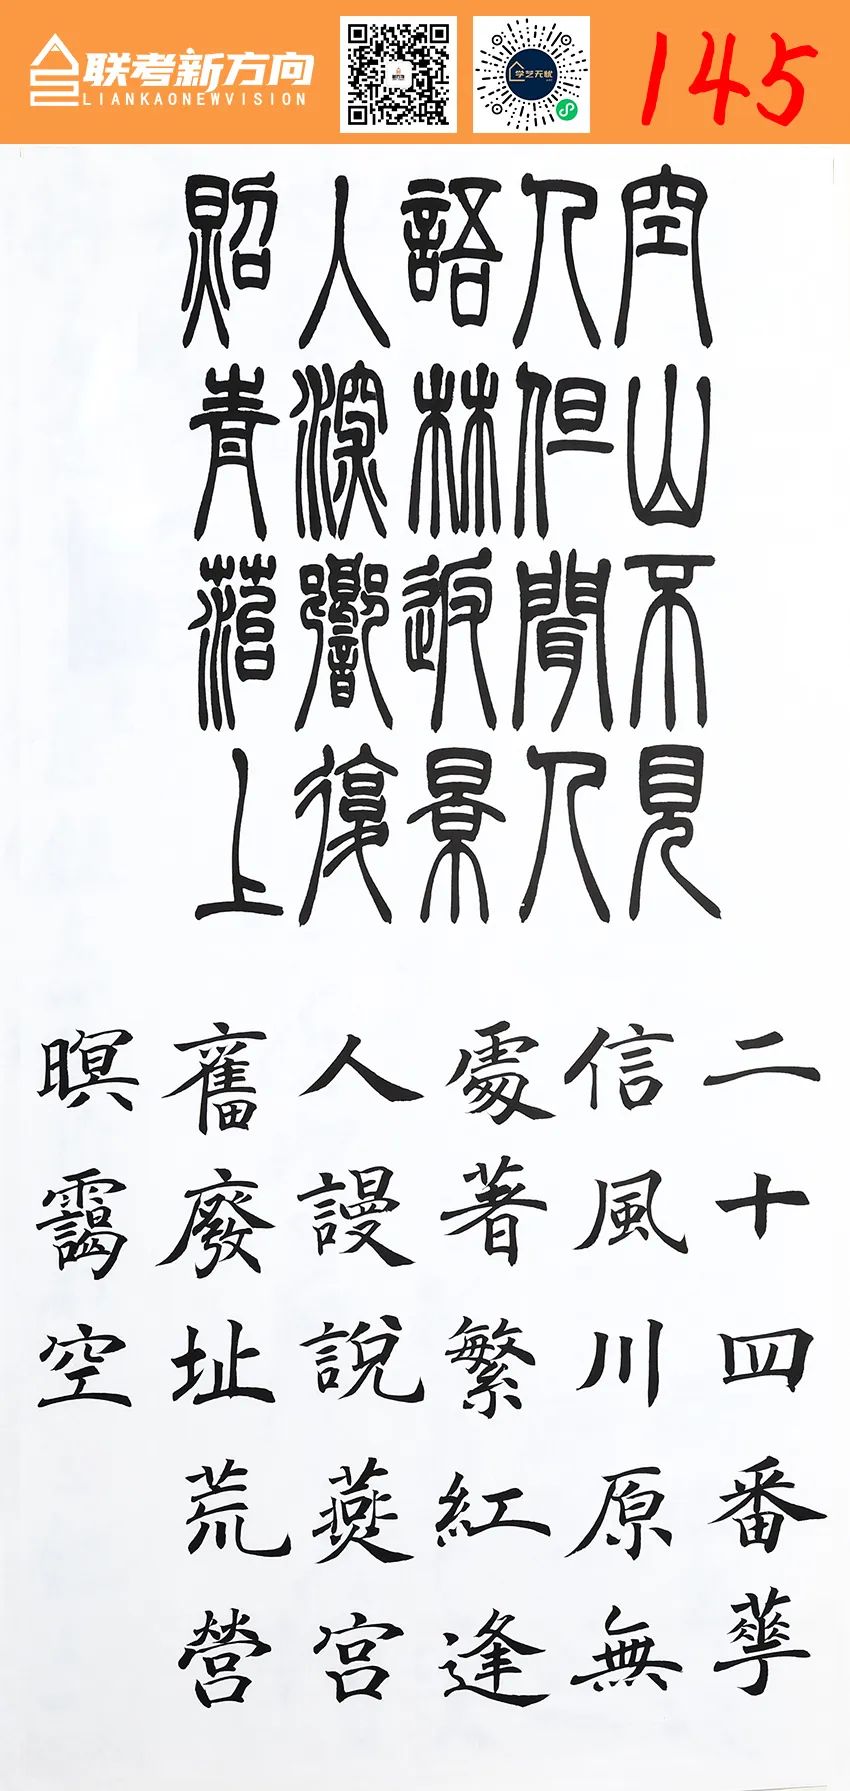 联考新方向
LIANKAONEWVISION
学艺无忧
145
空山不見
人但聞人
語林返景
人深響復
照青苔上
二十四番華
信風川原無
處著繁紅逢
人謾說燕宮
舊廢址荒營
暝靄空